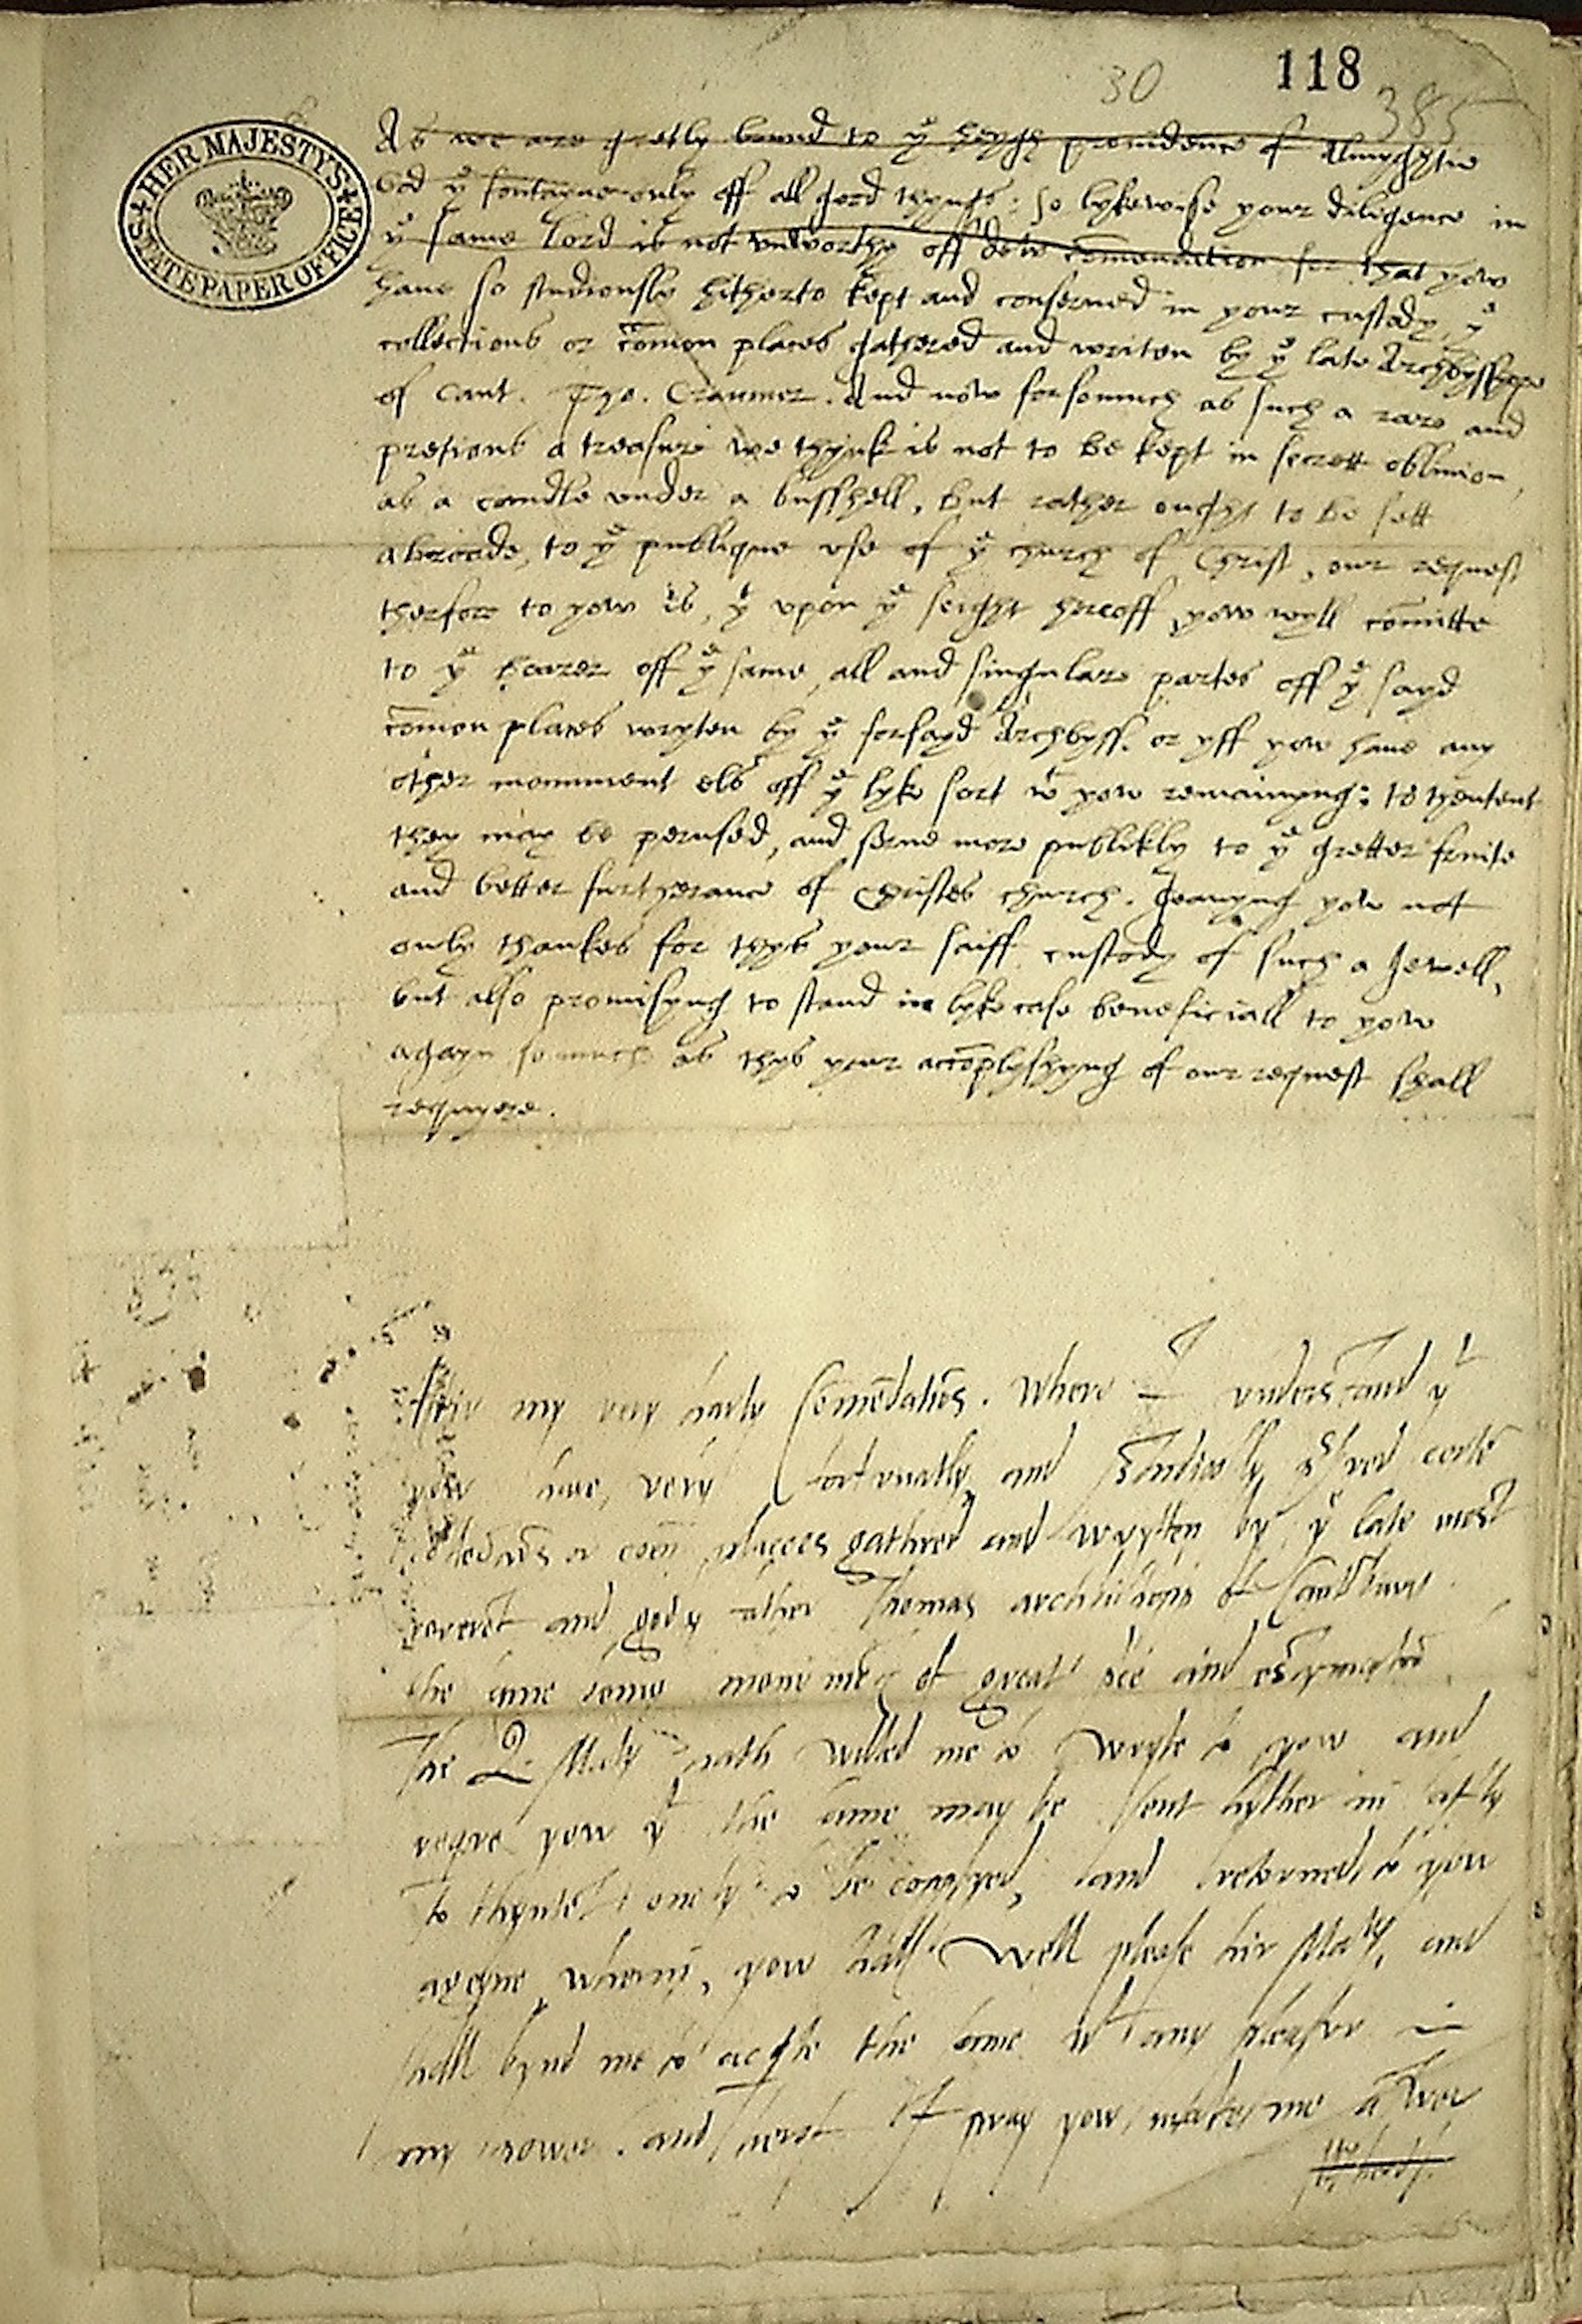 30 118
385
HER MAJESTYS STATE PAPER OFFICE
As we are gretly bound to yᵉ heygh providence of Almyghtie
God yᵉ fontayne only off all good thynges: so lykewise your diligence in
yᵉ same Lord is not unworthy off dew cōmendation for that yow
have so studiously hitherto kept and conserved in your custody yᵉ
collections or cōmon places gathered and writen by yᵉ late Archbysshope
of Cant. Tho. Cranmer. And now forsomuch as such a rare and
pretious a treasure we thynk is not to be kept in secrett oblivion,
as a candle under a busshell, but rather ought to be sett
abroade, to yᵉ publique use of yᵉ church of Christ, our request
therfore to yow is, yᵗ upon yᵉ seight hereoff, yow wyll cōmitte
to yᵉ bearer off yᵉ same, all and singulare partes off yᵉ sayd
cōmon places wryten by yᵉ forsayd Archbyss. or yff yow have any
other monument els off yᵉ lyke sort wᵗ yow remainyng: to thentent
they may be perused, and serve more publikly to yᵉ gretter fruite
and better furtherance of Christes church. Geavyng yow not
only thankes for thys your saiff custody of such a Jewell,
but also promisyng to stand in lyke case beneficiall to yow
agayn so much as thys your accōplyshyng of our request shall
requyere.
After my very harty Cōmēdatiōs. Where I understand yᵗ
yow have very fortunatly and studiously
or coēn places gathred and wrytten by yᵉ late most
reverēt and godly father Thomas archbishop of Cantᵇury
the same being of great and
The Q. Maty hath willed me to wryte to yow and
reqre yow yᵗ the same may be sent hyther in safty
to thyntēt only to be copyed, and retorned to yow
ageyne wherin, yow shall well please hir Maty, and
shall bynd me to acqte the same wᵗ any pleasur in
my power. and herof I pray yow, make me answer